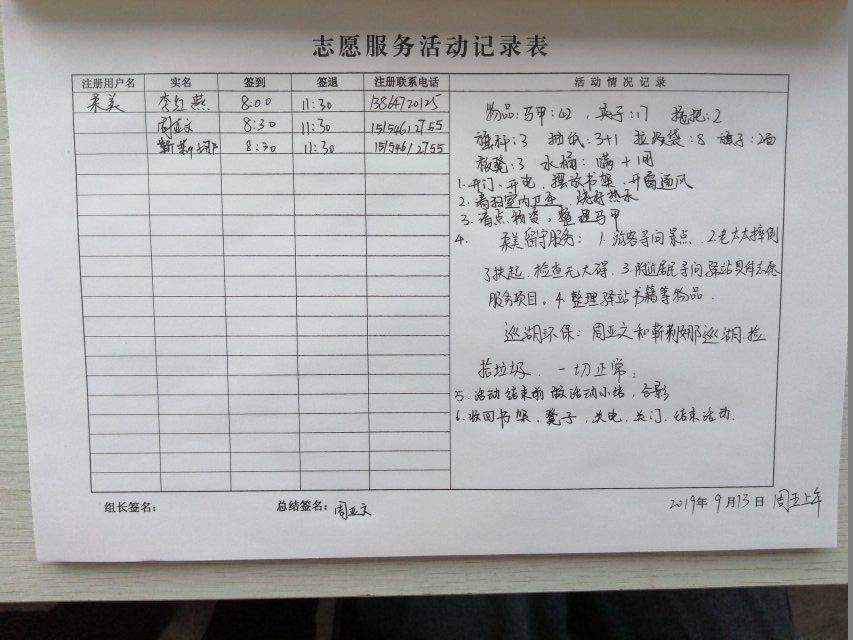 志愿服务活动记录表
注册用户名 实名 签到 签退 注册联系电话 活动情况记录
柔美 李红燕 8:00 11:30 13864720125
周亚文 8:30 11:30 15154612755
靳莉娜 8:30 11:30 15154612755
物品:马甲:62,夹子:17 拖把:2
旗杆:3 抽纸:3+1 垃圾袋:8 旗子:2面
板凳:3 水桶:满+1闲
1.开门、开电、摆放书架、开窗通风
2.清扫室内卫生、烧好热水
3.清点物资,整理马甲
4. 柔美留守服务:1.游客寻问景点、2.老太太摔倒
了扶起,检查无大碍.3.附近居民寻问驿站具体志愿
服务项目。4.整理驿站书籍等物品.
巡湖环保:周亚文和靳莉娜巡湖.捡
拾垃圾,一切正常;
5.活动结束前做活动小结,合影
6.收回书架、凳子,关电、关门.结束活动.
组长签名: 总结签名:周亚文 2019年9月13日 周五上午